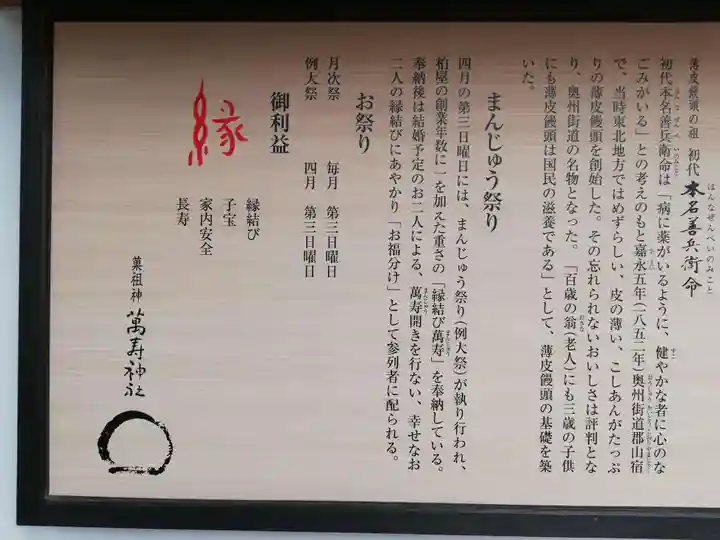 薄皮饅頭の祖 初代 本名善兵衛命
はんなぜんべいのみこと
初代本名善兵衛命は「病に薬がいるように、健やかな者に心のな
ごみがいる」との考えのもと嘉永五年(一八五二年)奥州街道郡山宿
で、当時東北地方ではめずらしい、皮の薄い、こしあんがたっぷ
りの薄皮饅頭を創始した。その忘れられないおいしさは評判とな
り、奥州街道の名物となった。「百歳の翁(老人)にも三歳の子供
にも薄皮饅頭は国民の滋養である」として、薄皮饅頭の基礎を築
いた。
まんじゅう祭り
四月の第三日曜日には、まんじゅう祭り(例大祭)が執り行われ、
柏屋の創業年数に一を加えた重さの「縁結び萬寿」を奉納している。
奉納後は結婚予定のお二人による、萬寿開きを行ない、幸せなお
二人の縁結びにあやかり「お福分け」として参列者に配られる。
お祭り
月次祭 毎月 第三日曜日
例大祭 四月 第三日曜日
御利益
縁
縁結び
子宝
家内安全
長寿
菓祖神 萬寿神社